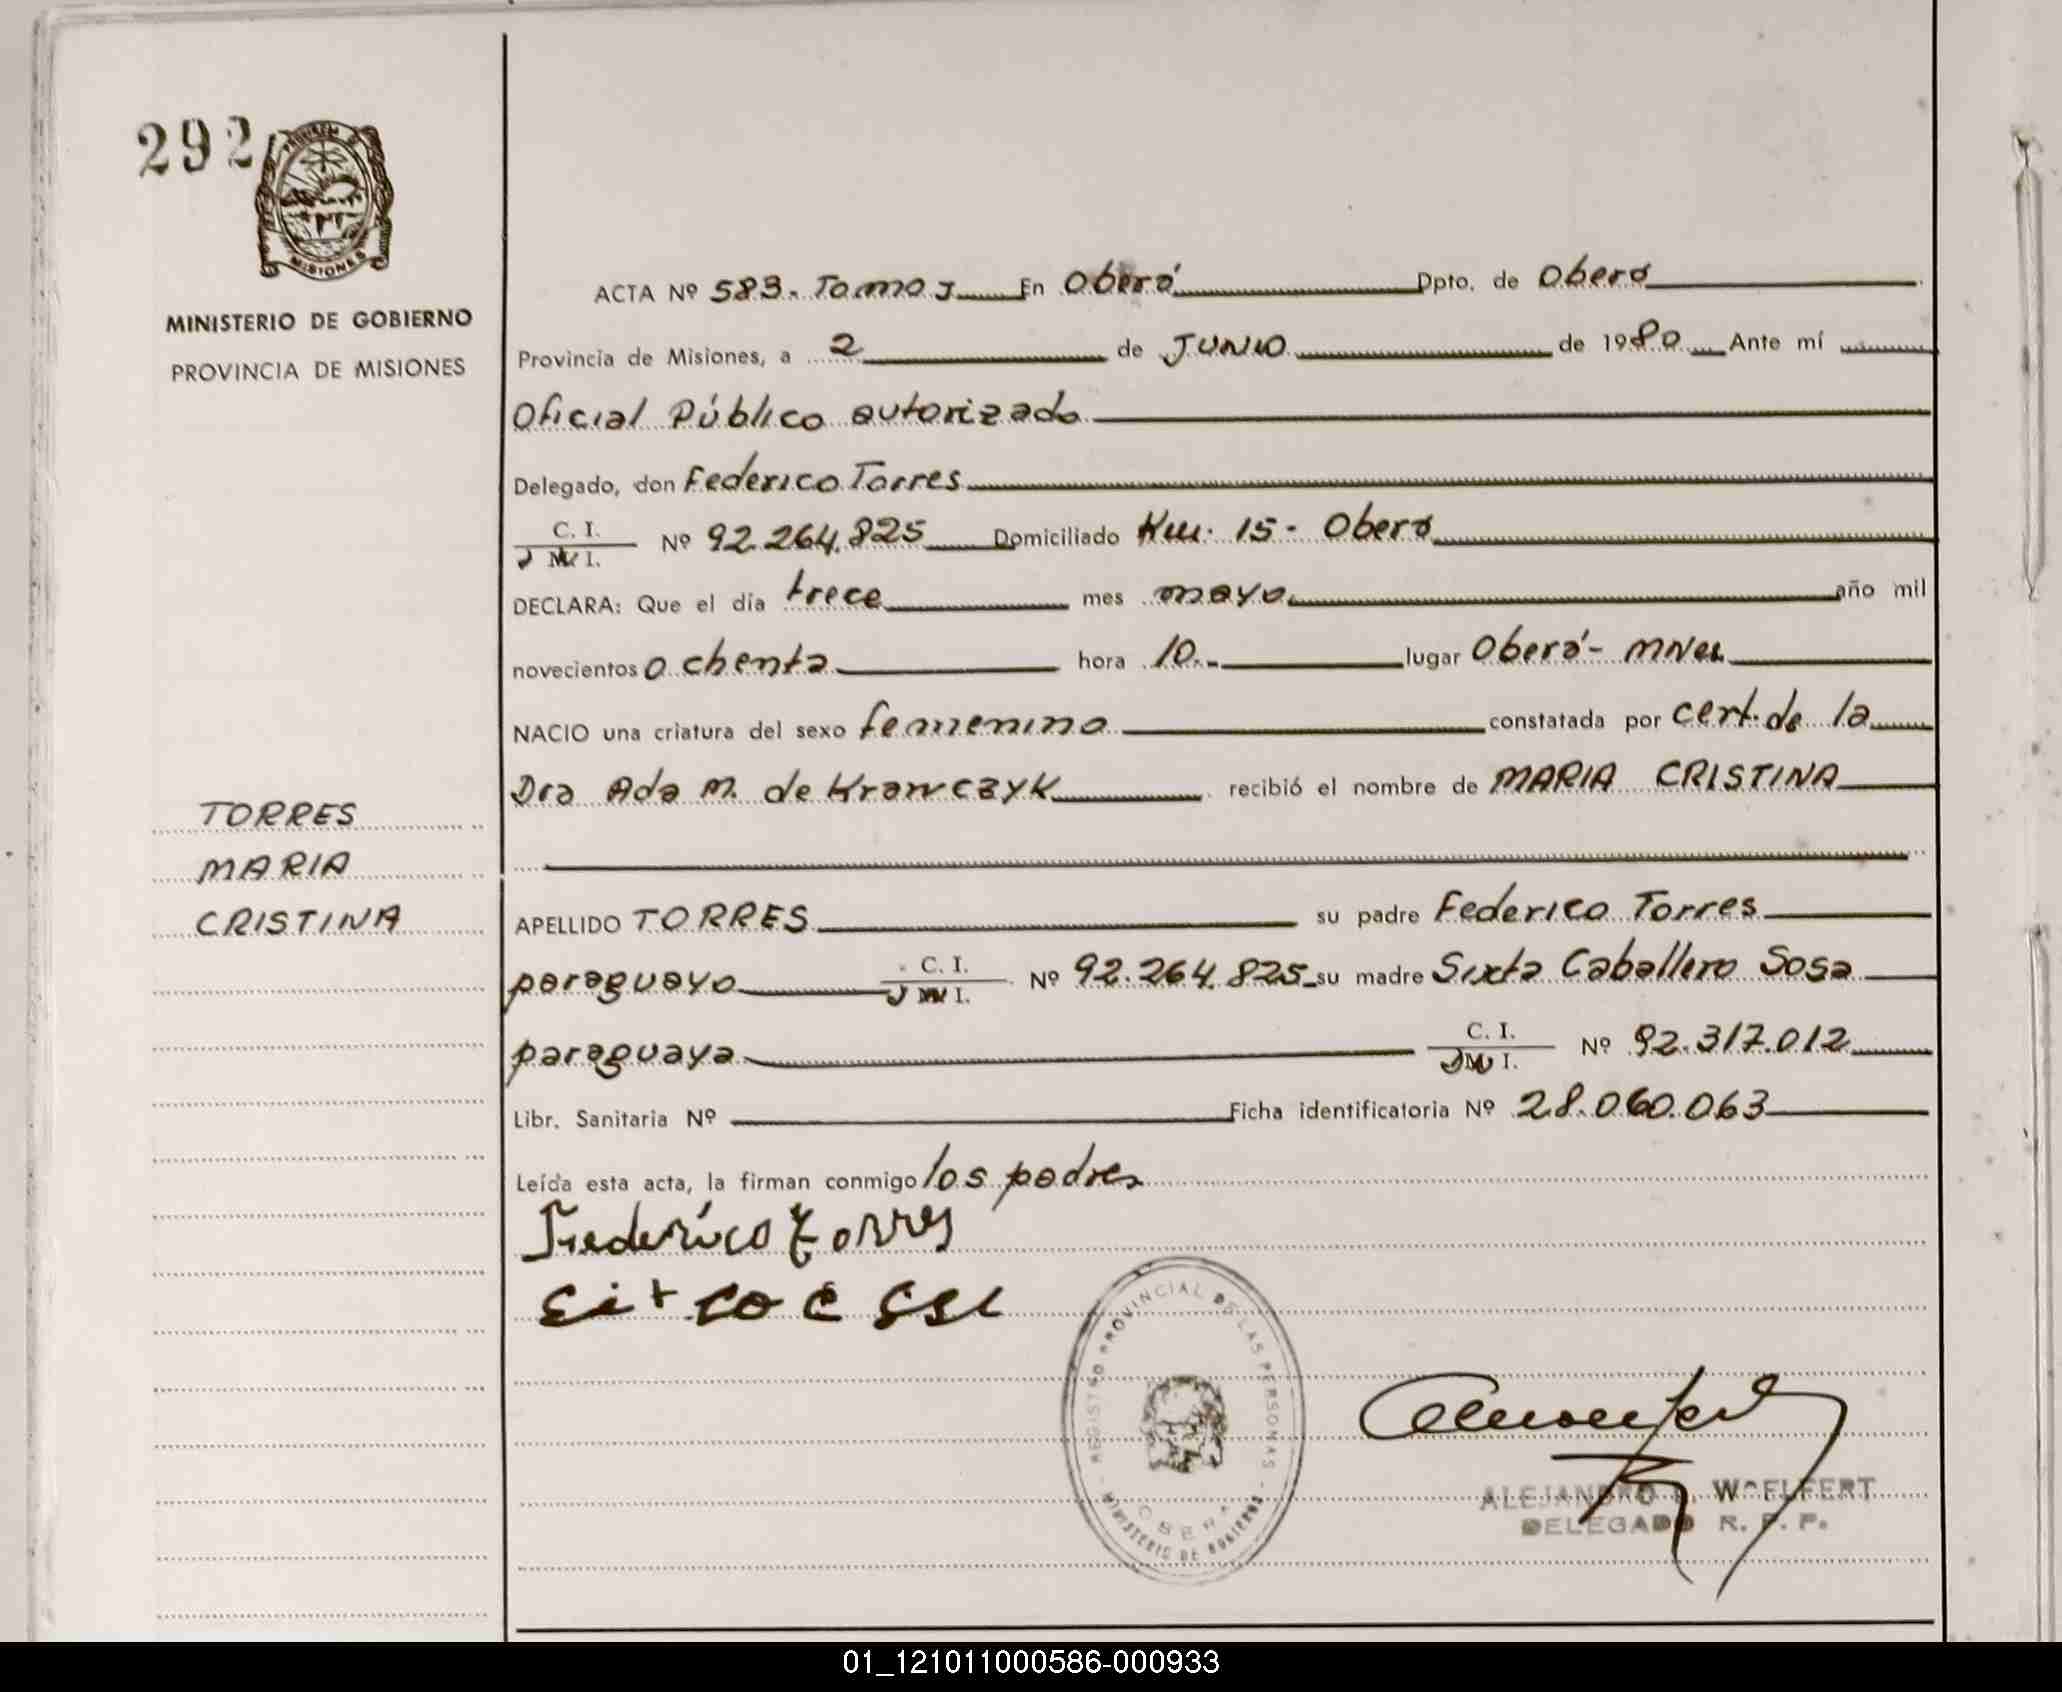 292
PROVINCIA
MISIONES
MINISTERIO DE GOBIERNO
PROVINCIA DE MISIONES
TORRES
MARIA
CRISTINA
ACTA Nº 583. Tomo I En Oberá Dpto. de Oberá
Provincia de Misiones, a 2 de JUNIO de 1980 Ante mí
Oficial Público autorizado
Delegado, don Federico Torres
C. I. Nº 92.264.825 Domiciliado Km. 15 - Oberá
DECLARA: Que el día trece mes mayo año mil
novecientos ochenta hora 10.- lugar Oberá - Mnes
NACIO una criatura del sexo femenino constatada por cert. de la
Dra Ada M. de Krawczyk recibió el nombre de MARIA CRISTINA
APELLIDO TORRES su padre Federico Torres
paraguayo C. I. Nº 92.264.825 su madre Sixta Caballero Sosa
paraguaya C. I. Nº 92.317.012
Libr. Sanitaria Nº Ficha identificatoria Nº 28.060.063
Leída esta acta, la firman conmigo los padres
Federico Torres
REGISTRO PROVINCIAL DE LAS PERSONAS
OBERA
MINISTERIO DE GOBIERNO
ALEJANDRO WOELFERT
DELEGADO R. P. P.
01_121011000586-000933